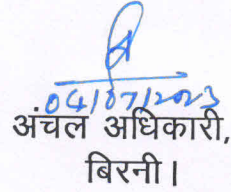 04/07/2023
अंचल अधिकारी,
बिरनी।